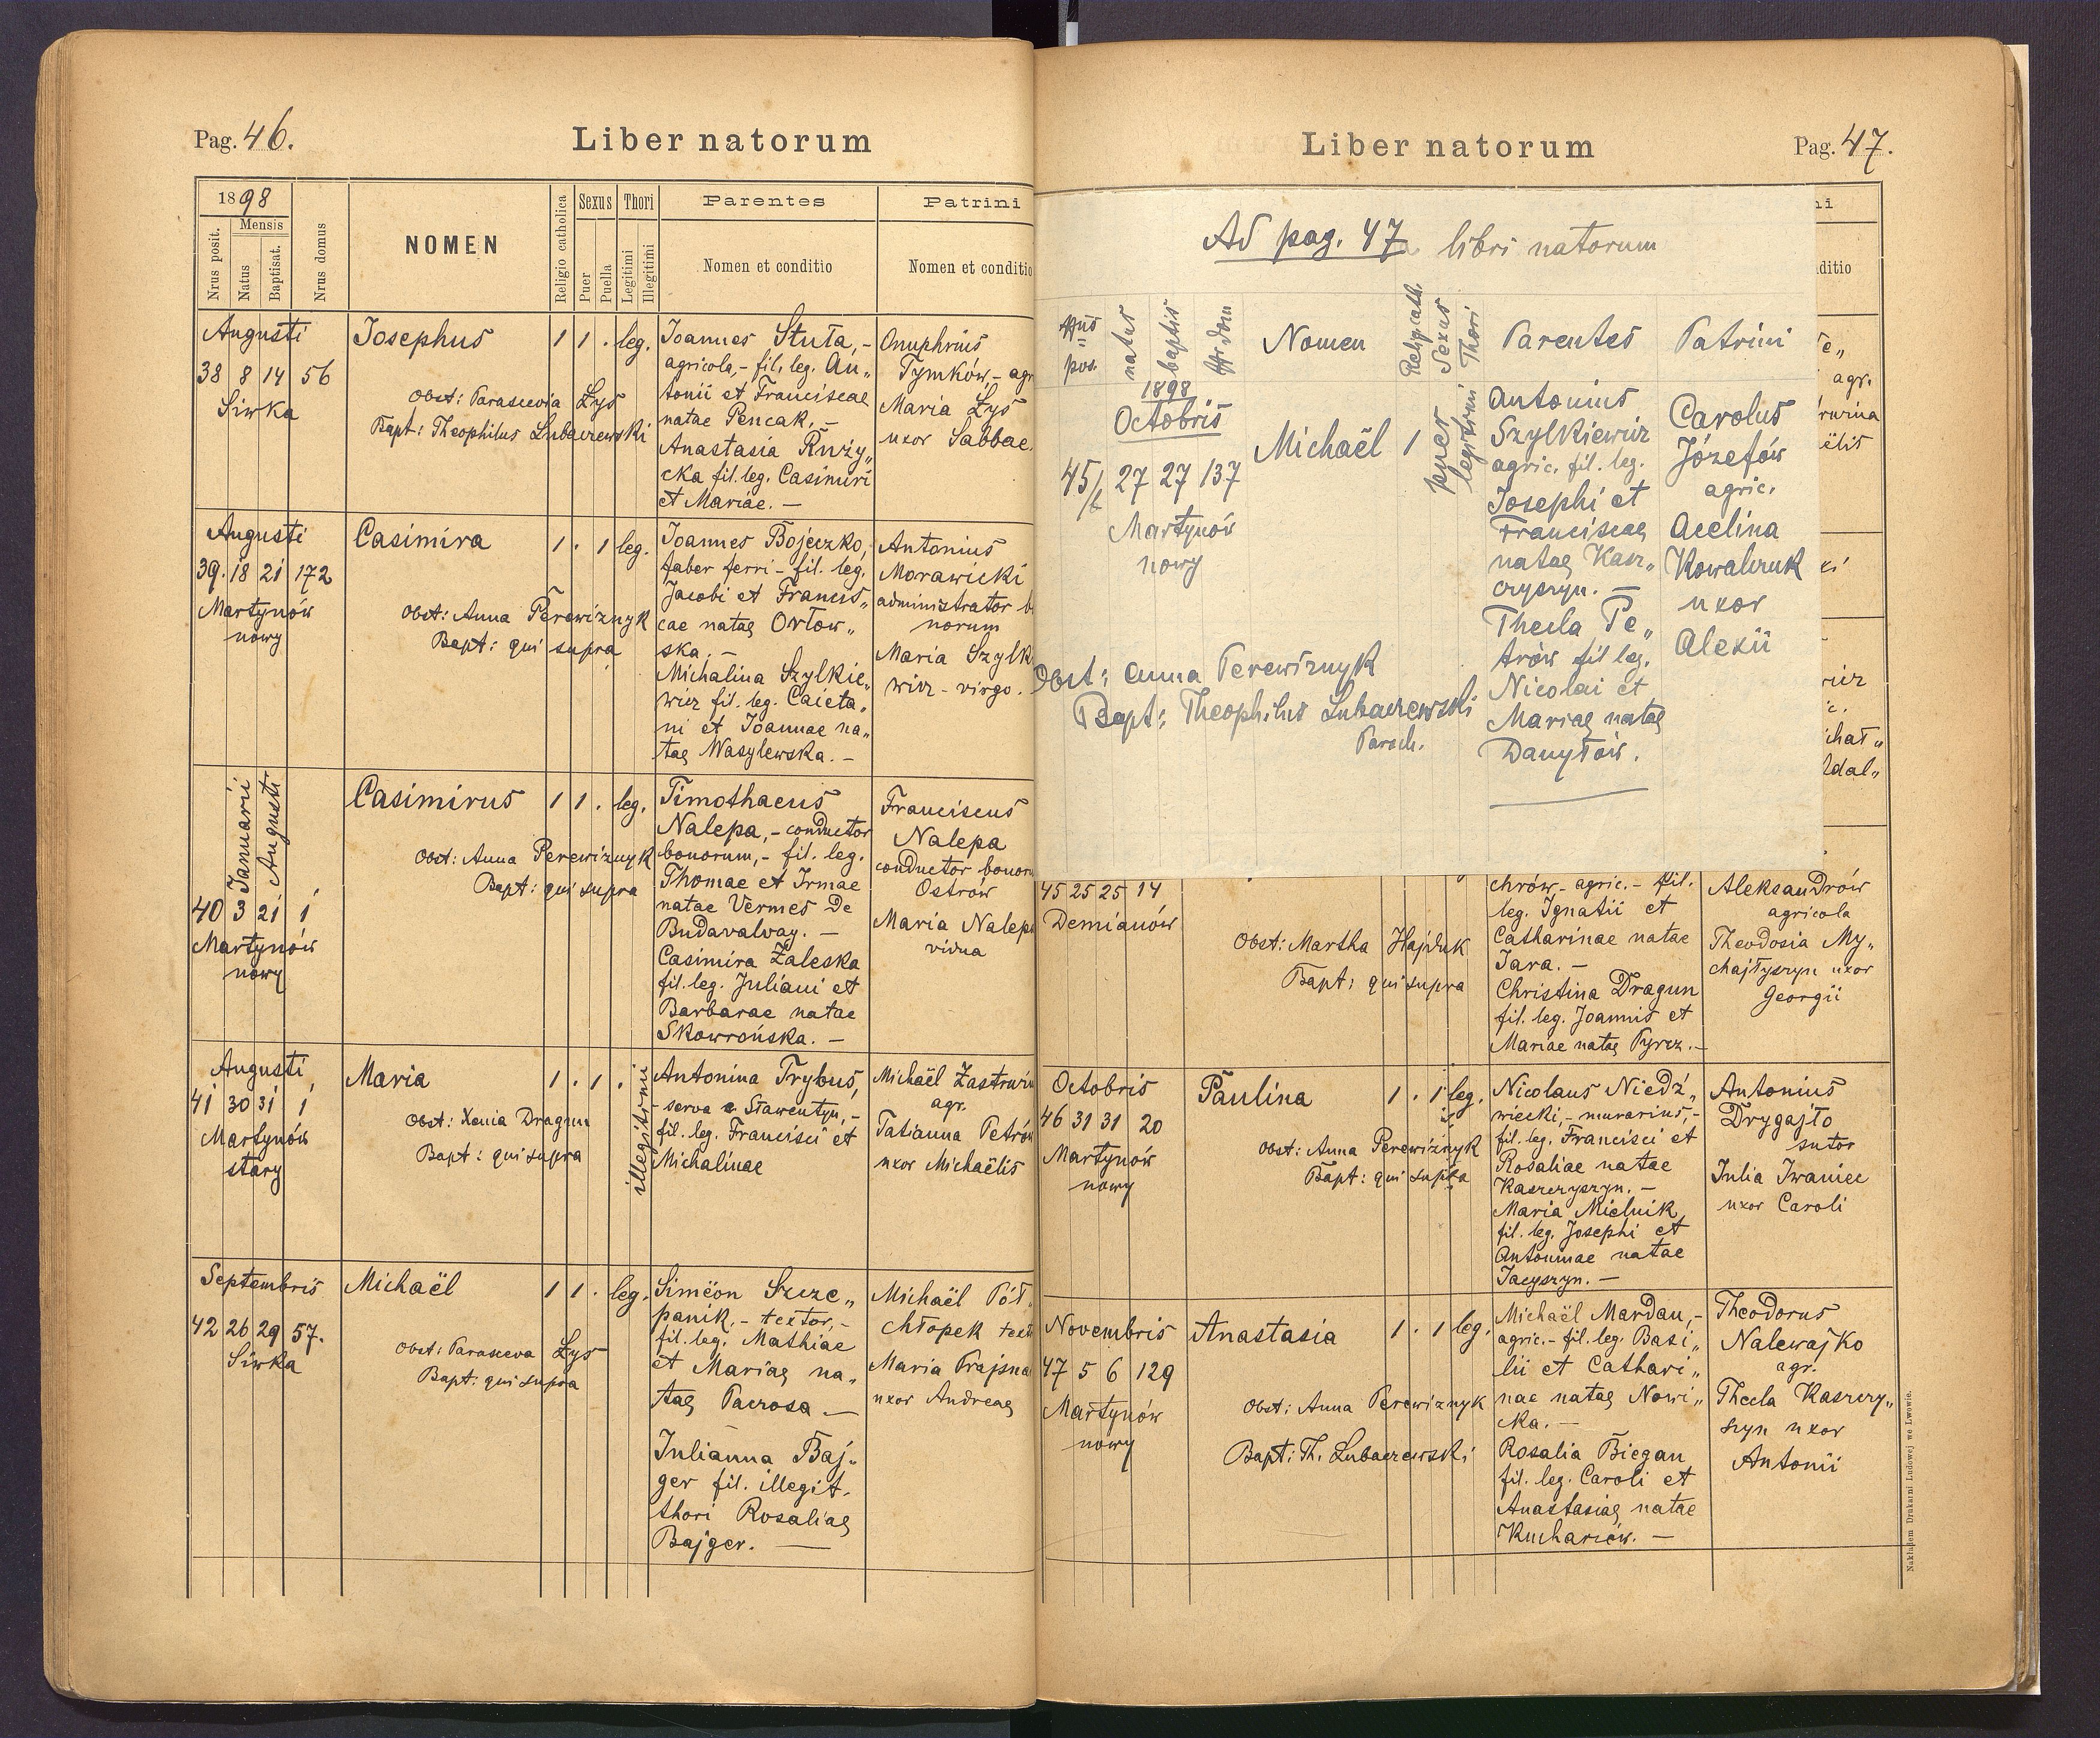 Pag. 46.
Liber natorum
1898
Mensis
Nrus posit.
Natus
Baptisat.
Nrus domus
NOMEN
Religio catholica
Sexus
Puer
Puella
Thori
Legitimi
Illegitimi
Parentes
Nomen et conditio
Patrini
Nomen et conditio
Augusti
38 8 14 56
Siwka
Josephus
Obst: Parascevia Łyś
Bapt: Theophilus Lubaczewski
1 1 . leg.
Joannes Stuta, -
agricola, - fil. leg. An„
tonii et Franciscae
natae Pencak. -
Anastasia Ruży„
cka fil. leg. Casimiri
et Mariae. -
Onuphrius
Tymków, - agr
Maria Łyś
uxor Sabbae
Augusti
39. 18 21 172
Martynów
nowy
Casimira
Obst: Anna Perewiznyk
Bapt: qui supra
1 . 1 leg.
Joannes Bojeczko,
faber ferri - fil. leg.
Jacobi et Francis„
cae natae Orłow„
ska. -
Michalina Szylkie„
wicz fil. leg. Caieta„
ni et Joannae na„
tae Wasylewska. -
Antonius
Morawicki
administrator bo
norum
Maria Szylk
wicz - virgo.
Januarii
Augusti
40 3 21 1
Martynów
nowy
Casimirus
Obst: Anna Perewiznyk
Bapt: qui supra
1 1 . leg.
Timothaeus
Nalepa, - conductor
bonorum, - fil. leg.
Thomae et Irmae
natae Vermes de
Budavalvay. -
Casimira Zaleska
fil. leg. Juliani et
Barbarae natae
Skowrońska. -
Franciscus
Nalepa
conductor bonor
Ostrów
Maria Nalep
vidua
Augusti
41 30 31 1
Martynów
stary
Maria
Obst: Xenia Dragun
Bapt: qui supra
1 . 1 .
illegitimi
Antonina Trybus,
- serva e Stawentyn, -
fil. leg. Francisci et
Michalinae
Michaël Zastrwin
agr.
Tatianna Petrów
uxor Michaëlis
Septembris
42 26 29 57.
Siwka
Michaël
Obst: Parasceva Łyś
Bapt: qui supra
1 1 . leg.
Simëon Szcze„
panik, - textor, -
fil. leg. Mathiae
et Mariae na„
tae Pacrosa -
Julianna Baj„
ger fil. illegit.
thori Rosaliae
Bajger. -
Michaël Pół
chłopek text
Maria Prajsna
uxor Andreae
Liber natorum
Pag. 47.
Ad pag. 47 libri natorum
Nrus
pos.
natus
baptis
Nr. dom
Nomen
Relig. cath.
Sexus
Thori
Parentes
Patrini
1898
Octobris
45/b 27 27 137
Martynów
nowy
Michaël 1
puer
legitimi
Antonius
Szylkiewicz
agric. fil. leg.
Josephi et
Franciscae
natae Kasz„
czyszyn. -
Thecla Pe„
trów fil leg.
Nicolai et
Mariae natae
Danyłów.
Carolus
Józefów
agric.
Acelina
Kowalczuk
uxor
Alexii
Obst: Anna Perewiznyk
Bapt: Theophilus Lubaczewski
Paroch.
ni
ditio
agr.
ëlis
45 25 25 14
Demianów
Obst: Martha Hajduk
Bapt: qui supra
chrów - agric. - fil.
leg. Ignatii et
Catharinae natae
Jara. -
Christina Dragun
fil. leg. Joannis et
Mariae natae Pyrcz. -
Aleksandrów
agricola
Theodosia My„
chajłyszyn uxor
Georgii
Octobris
46 31 31 20
Martynów
nowy
Paulina
Obst: Anna Perewiznyk
Bapt: qui supra
1 . 1 leg.
Nicolaus Niedź„
wiecki, - murarius, -
fil. leg. Francisci et
Rosaliae natae
Kaszczyszyn. -
Maria Mielnik
fil. leg. Josephi et
Antoninae natae
Jacyszyn. -
Antonius
Drygajło
sutor
Julia Iwaniec
uxor Caroli
Novembris
47 5 6 129
Martynów
nowy
Anastasia
Obst: Anna Perewiznyk
Bapt: Th. Lubaczewski
1 . 1 leg.
Michaël Mardan, -
agric. - fil. leg. Basi„
lii et Cathari„
nae natae Nowi„
cka. -
Rosalia Biegan
fil. leg. Caroli et
Anastasiae natae
Kuchariów. -
Theodorus
Nalewajko
agr.
Thecla Kaszczy„
szyn uxor
Antonii
Nakładem Drukarni Ludowej we Lwowie.